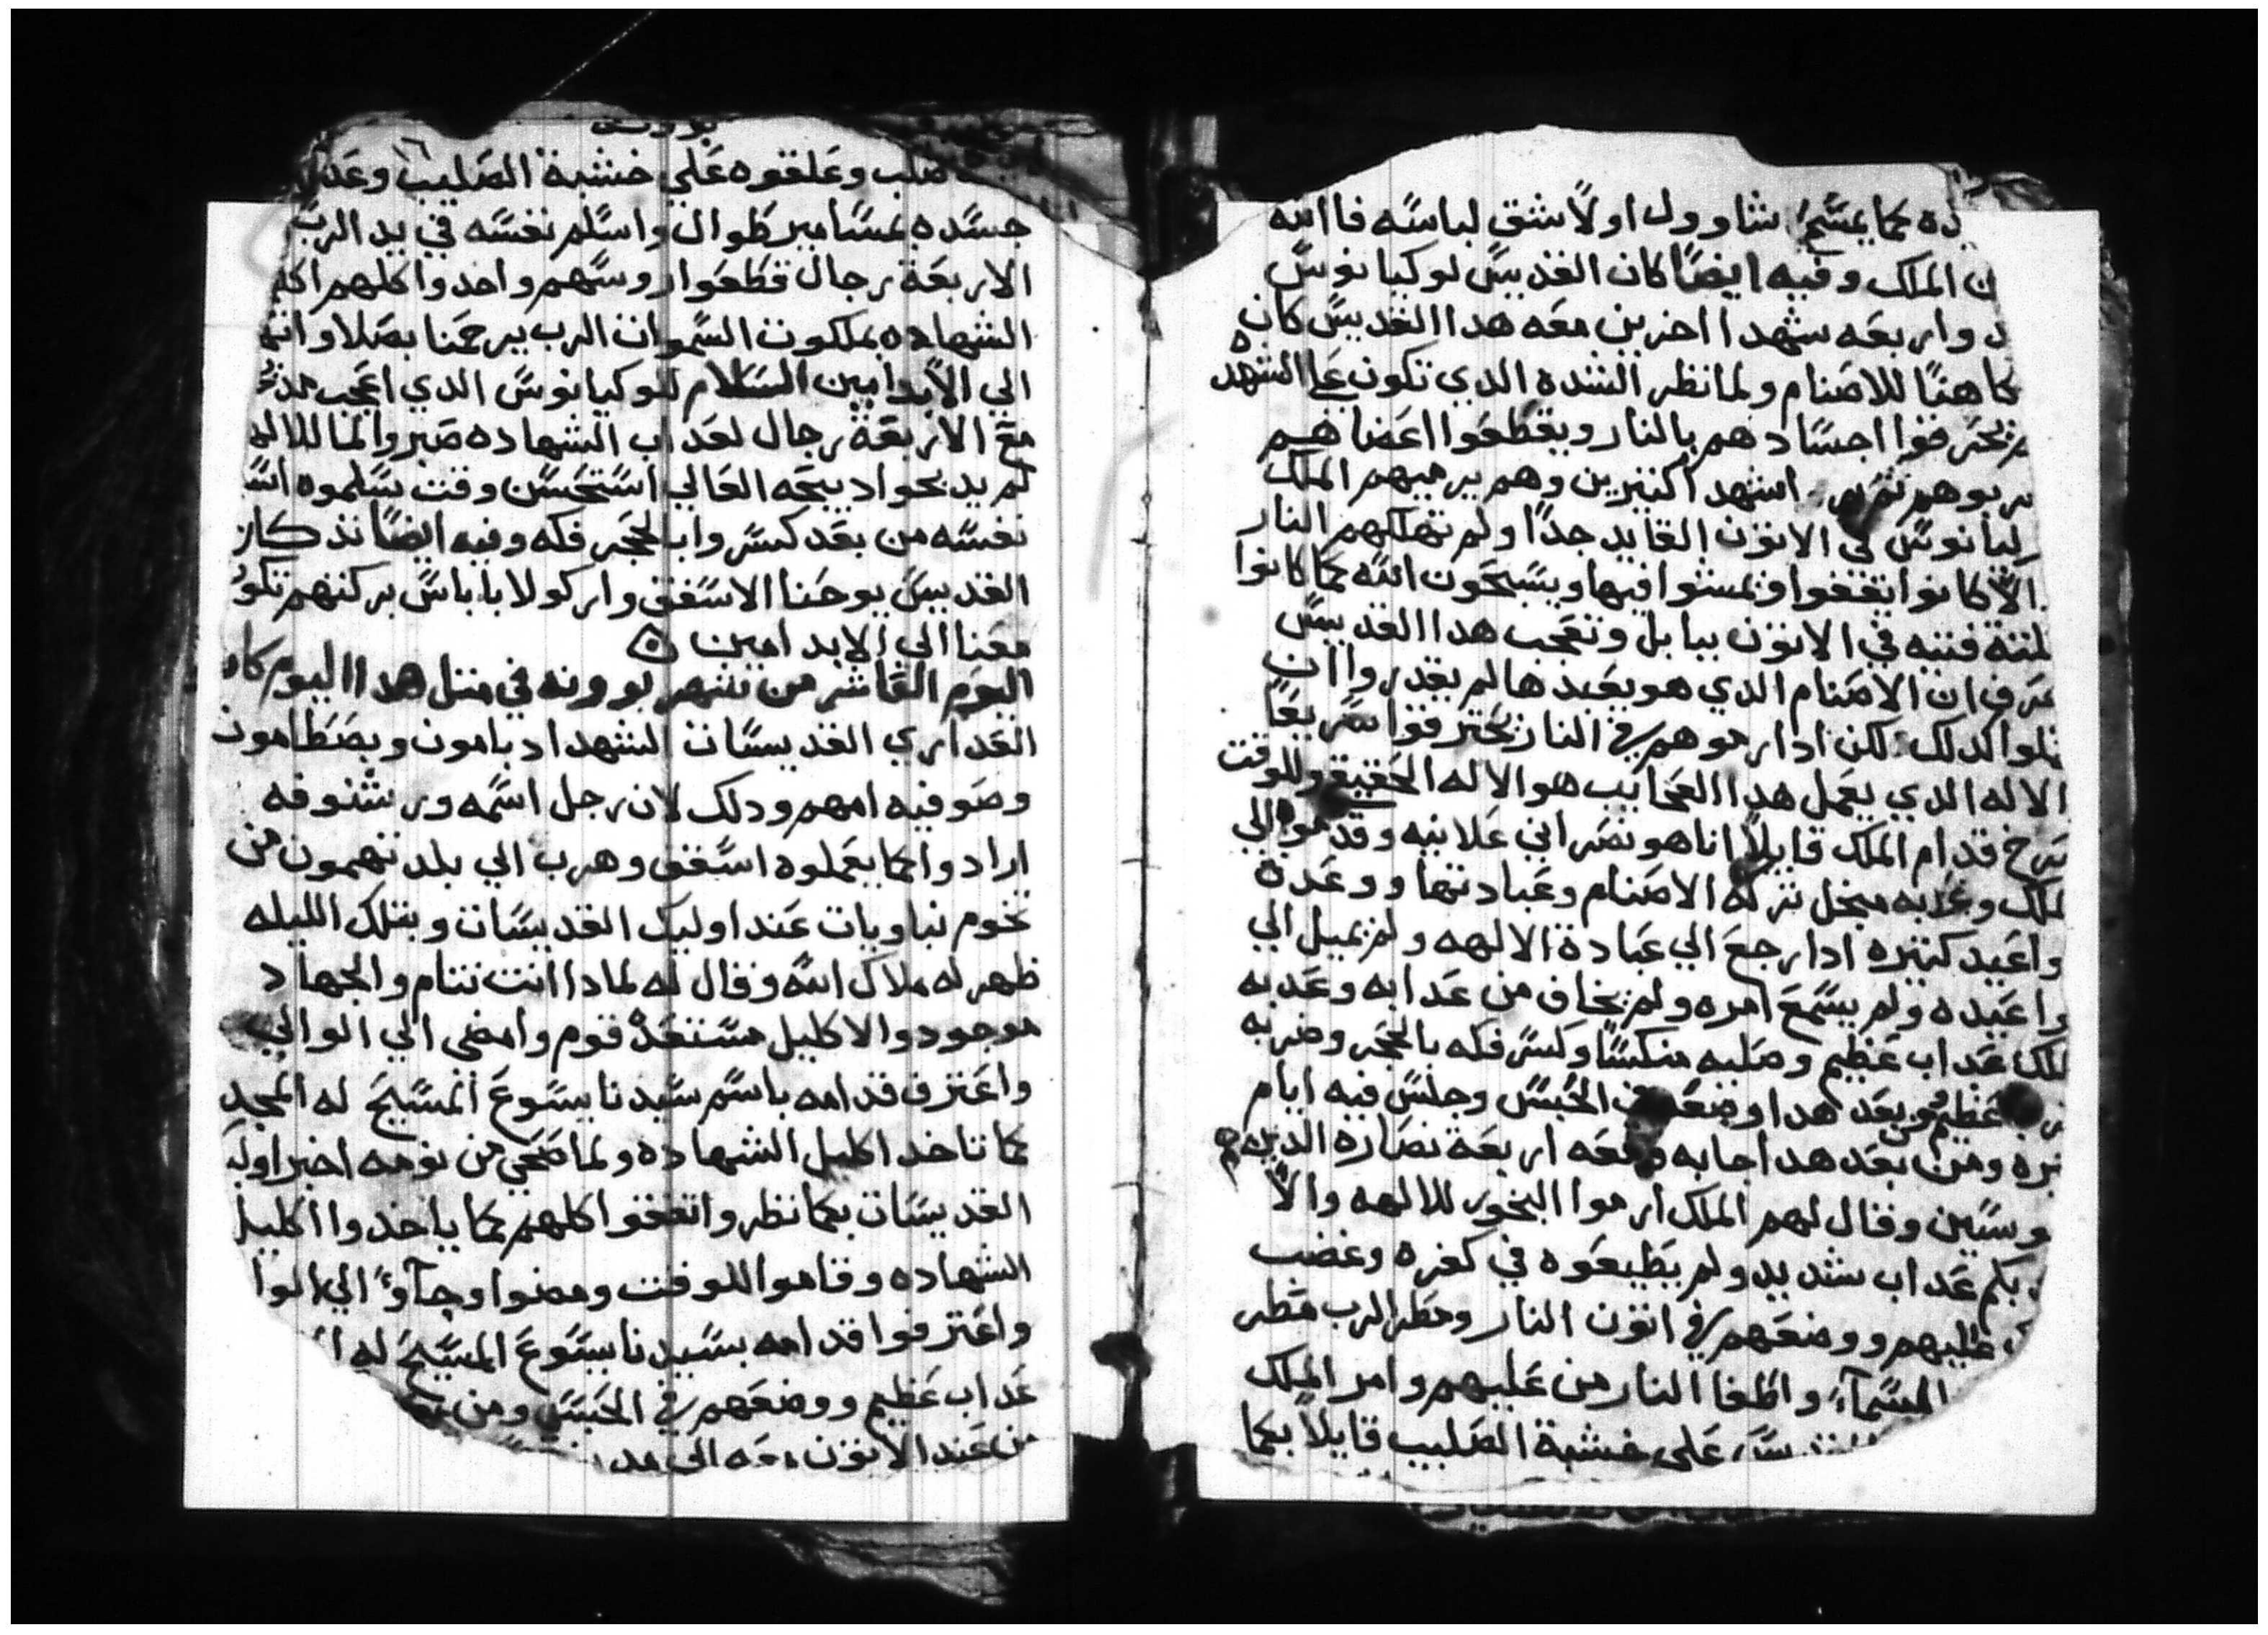 ده كما يمسَح شاوول اولاً شق لباسه فاالله
ن الملك وفيه ايضًا كان القديس لوكيانوس
د واربعه شهدا اخرين معه هدا القديس كان
كاهنًا للاصنام ولما نظر الشده الدي تكون علي الشهد
يحرقوا اجساد هم بالنار ويقطعوا اعضاهم
اشهد اكتيرين وهم يرميهم الملك
ليانوس في الاتون القايد جدًا ولم تهلكهم النار
الا كانوا يقفوا ويمشوا فيها ويسبحون الله كما كانوا
لتلتة فتيه في الاتون ببابل وتعجب هدا القديس
عرف ان الاصنام الدي هو يعبدها لم يقدروا ان
كدلك لكن ادا رموهم في النار يحترقوا سريعًا
الاله الدي يعمل هدا العجايب هو الاله الحقيقي وللوقت
صرخ قدام الملك قايلاً انا هو نصراني علانيه وقدموه الي
لملك وعدبه ميجل تركه الاصنام وعبادتها ووعده
واعيد كتيره ادا رجع الي عبادة الالهه ولم يميل الي
واعيده ولم يسمع امره ولم يخاف من عدابه وعدبه
لملك عداب عظيم وصلبه منكسًا وكسر فكه بالحجر وضربه
عظيم وبعد هدا وضعه في الحبس وجلس فيه ايام
يره ومن بعد هدا جابه ومعه اربعة نصاره الدين هم
وسين وقال لهم الملك ارموا البخور للالهه والا
بكم عداب شديد ولم يطيعوه في كفره وغضب
عليهم ووضعهم في اتون النار ومطر الرب مطر
السمآء واطفا النار من عليهم وامر الملك
علي خشبة الصليب قايلاً بعما
بوونه
١٦
صلب وعلقوه علي خشبة الصليب وعد
جسده بمسامير طوال واسلم نفسه في يد الرب
الاربعة رجال قطعوا روسهم واخدوا كلهم اكا
الشهاده بملكوت السموات الرب يرحمنا بصلاواتهم
الي الابد امين السلام للوكيانوس الدي اعجب
مع الاربعة رجال لعداب الشهاده صبروا لما للاله
لم يدبحوا دبيحه العالي استحسن وقت يسلموه
نفسه من بعد كسروا بالحجر فكه وفيه ايضًا تدكار
القديس يوحنا الاسقف واركولا باباس بركتهم تكو
معنا الي الابد امين
اليوم العاشر من شهر بوونه في متل هدا اليوم كان
العداري القديسات الشهدا دبامون وبصطامون
وصوفيه امهم ودلك لان رجل اسمه ورشنوفه
ارادوا كما يعملوه اسقف وهرب الي بلد تهمون من
تخوم نبا وبات عند اوليك القديسات وبتلك الليله
ظهر له ملاك الله وقال له لمادا انت تنام والجهاد
موجود والاكليل مستعد قوم وامضي الي الوالي
واعترف قدامه باسم سيدنا يسوع المسيح له المجد
كما تاخد اكليل الشهاده ولما صحي من نومه اخبر اوليك
القديسات بعما نظر واتفقوا كلهم كما ياخدوا اكليل
الشهاده وقاموا للوقت ومضوا وجآوا الي الوا
واعترفوا قدامه بسيدنا يسوع المسيح له ا
عداب عظيم ووضعهم في الحبس ومن
من عند الاتون